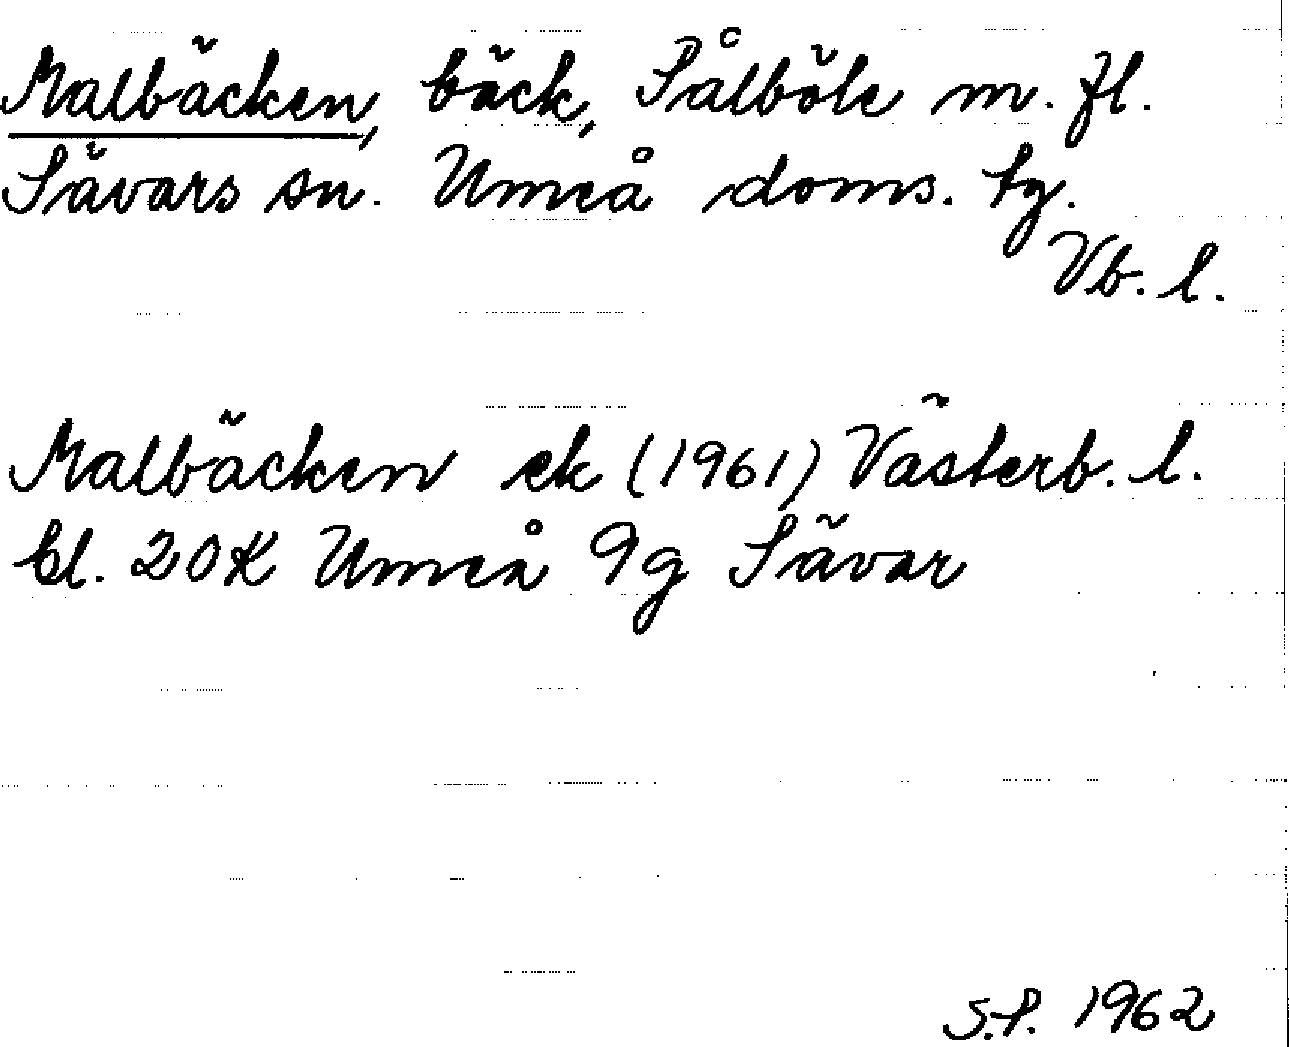 Malbäcken, bäck, Pålböle m. fl.
Sävars sn. Umeå doms. tg.
Vb. l.
Malbäcken ek (1961) Västerb. l.
bl. 20K Umeå 9g Sävar
S.P. 1962